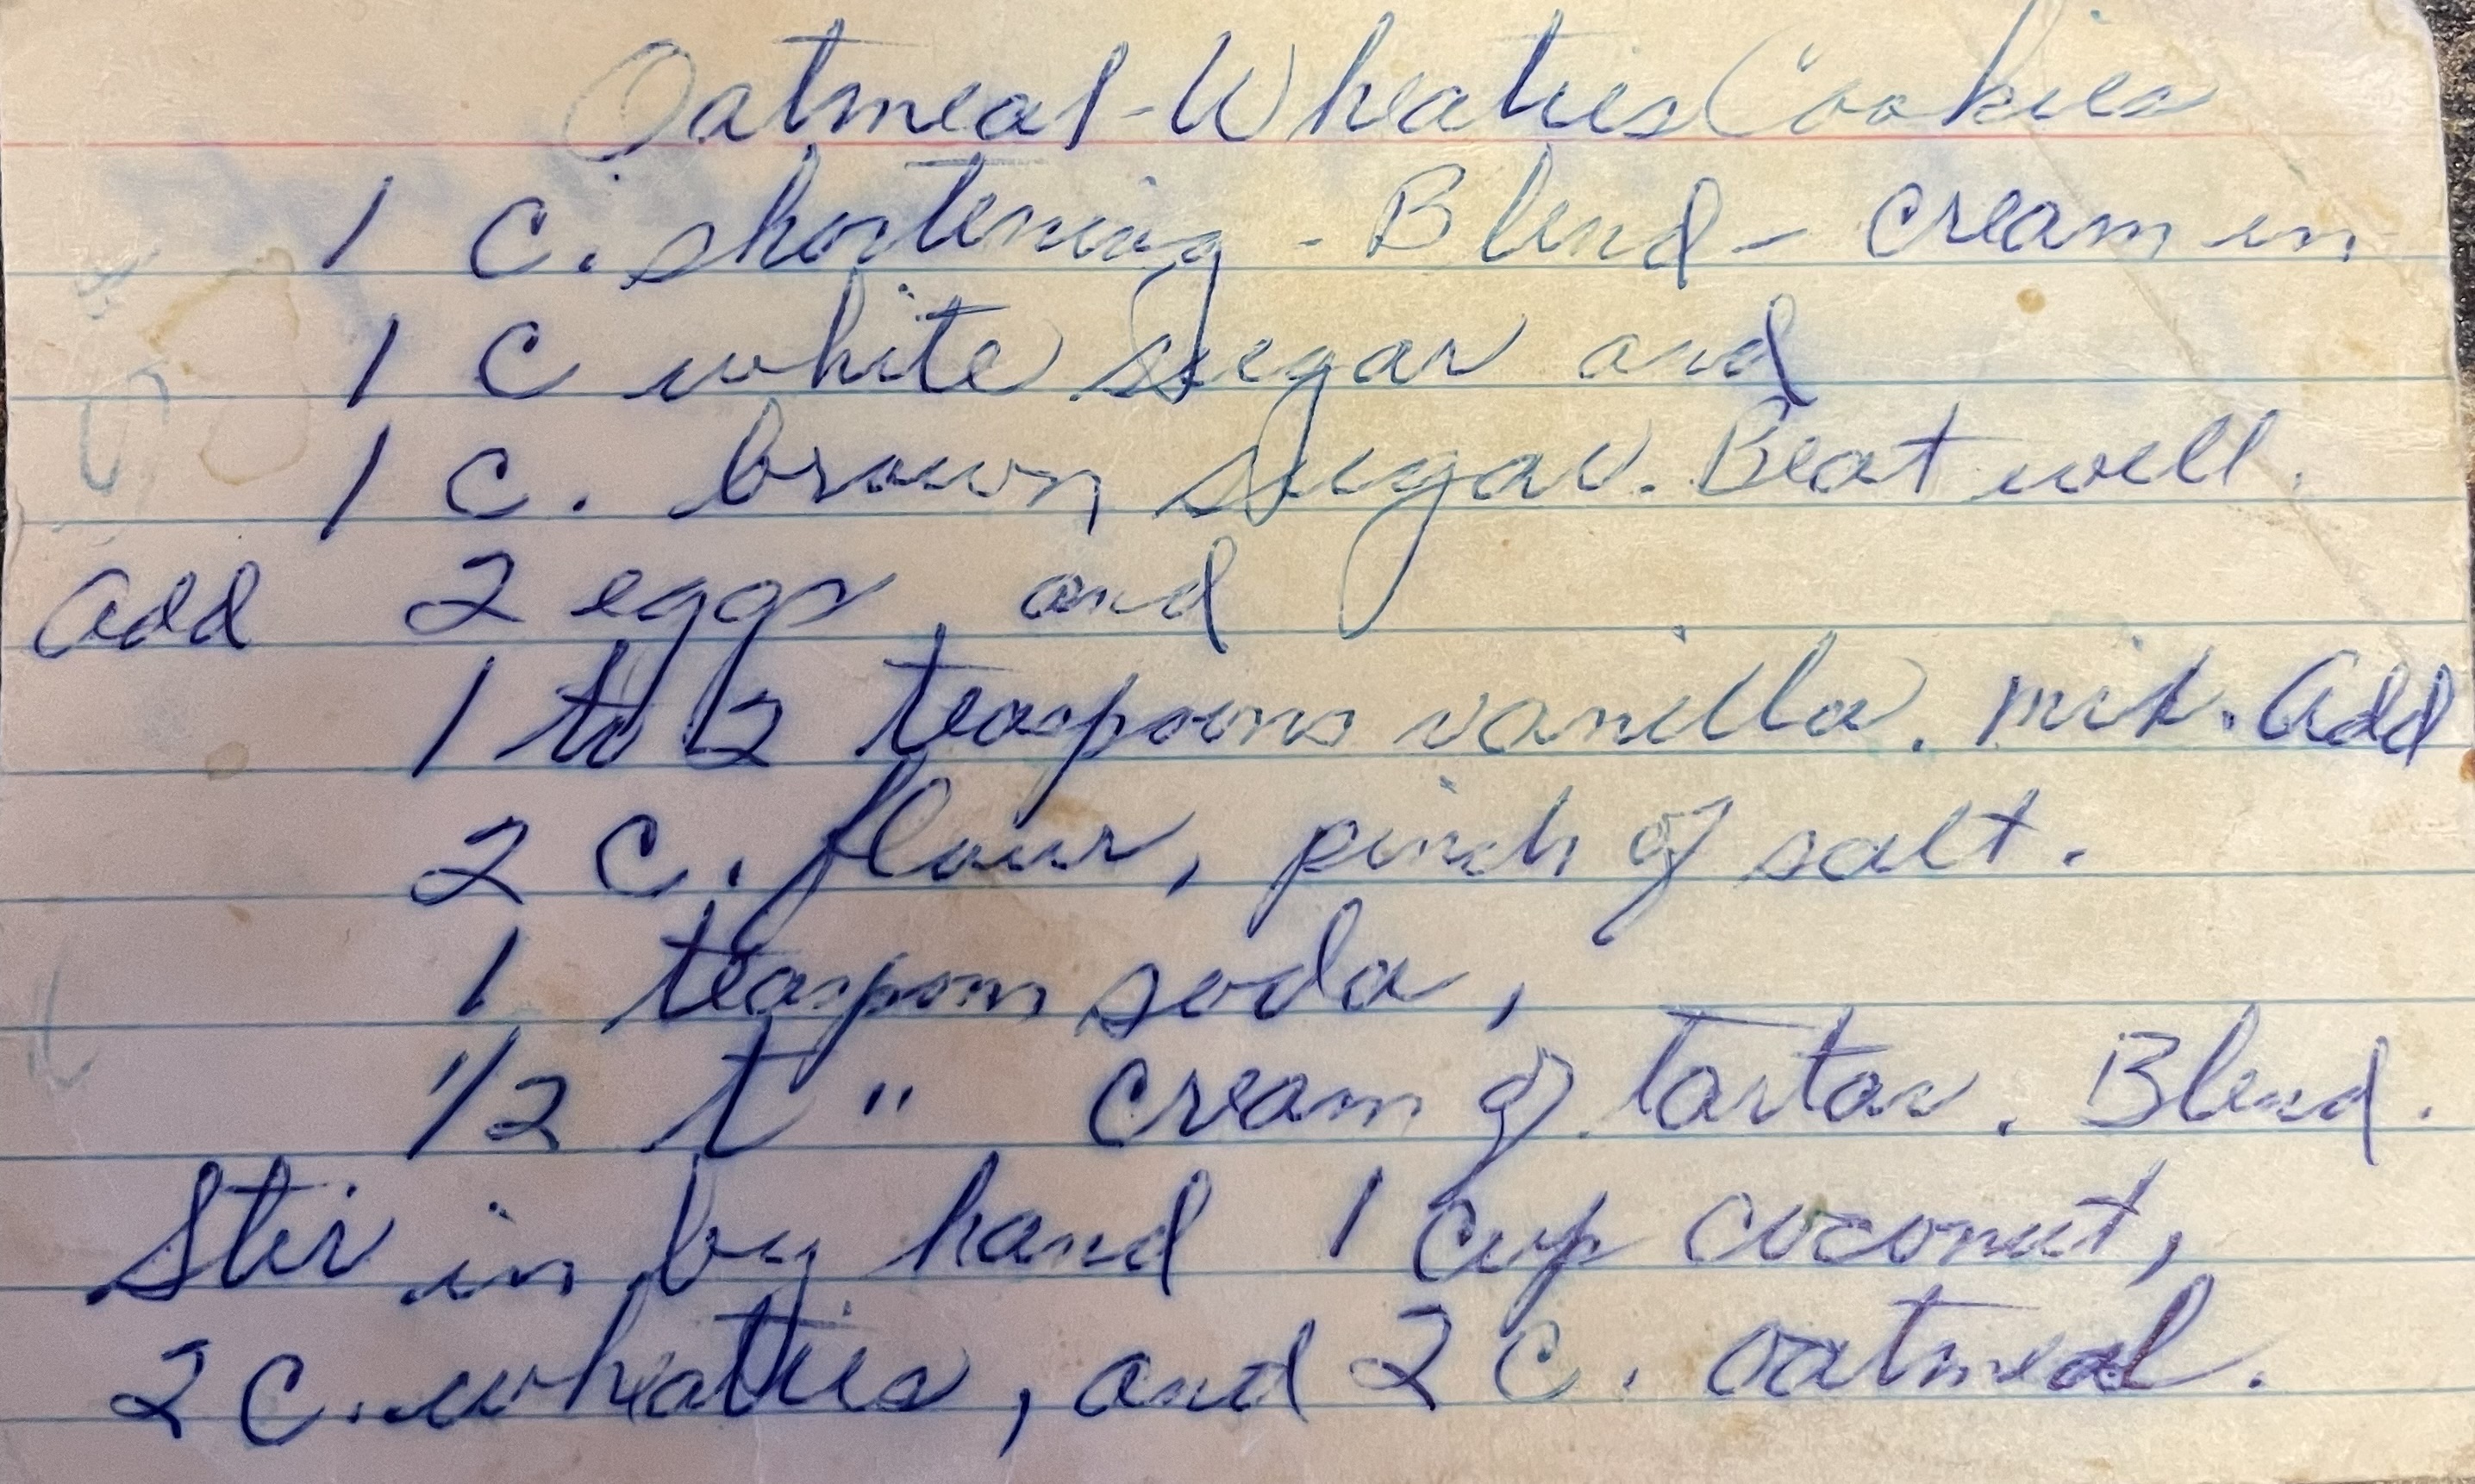 Oatmeal-Wheaties Cookies
1 C. shortening - Blend - cream in
1 C white sugar and
1 C. brown sugar. Beat well.
add 2 eggs, and
1 to 2 teaspoons vanilla. mix. add
2 C. flour, pinch of salt.
1 teaspoon soda,
1/2 t " cream of tartar. Blend.
Stir in by hand 1 cup coconut,
2 C. wheaties, and 2 C. oatmeal.